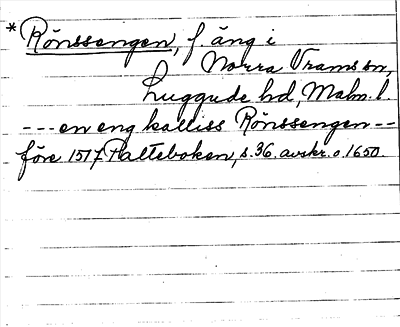 * Rönssengen, f. äng i
Norra Vrams sn,
Luggude hd, Malm. l.
--- en eng kalliss Rönssengen --
före 1517 Palteboken, s. 36. avskr. o. 1650.